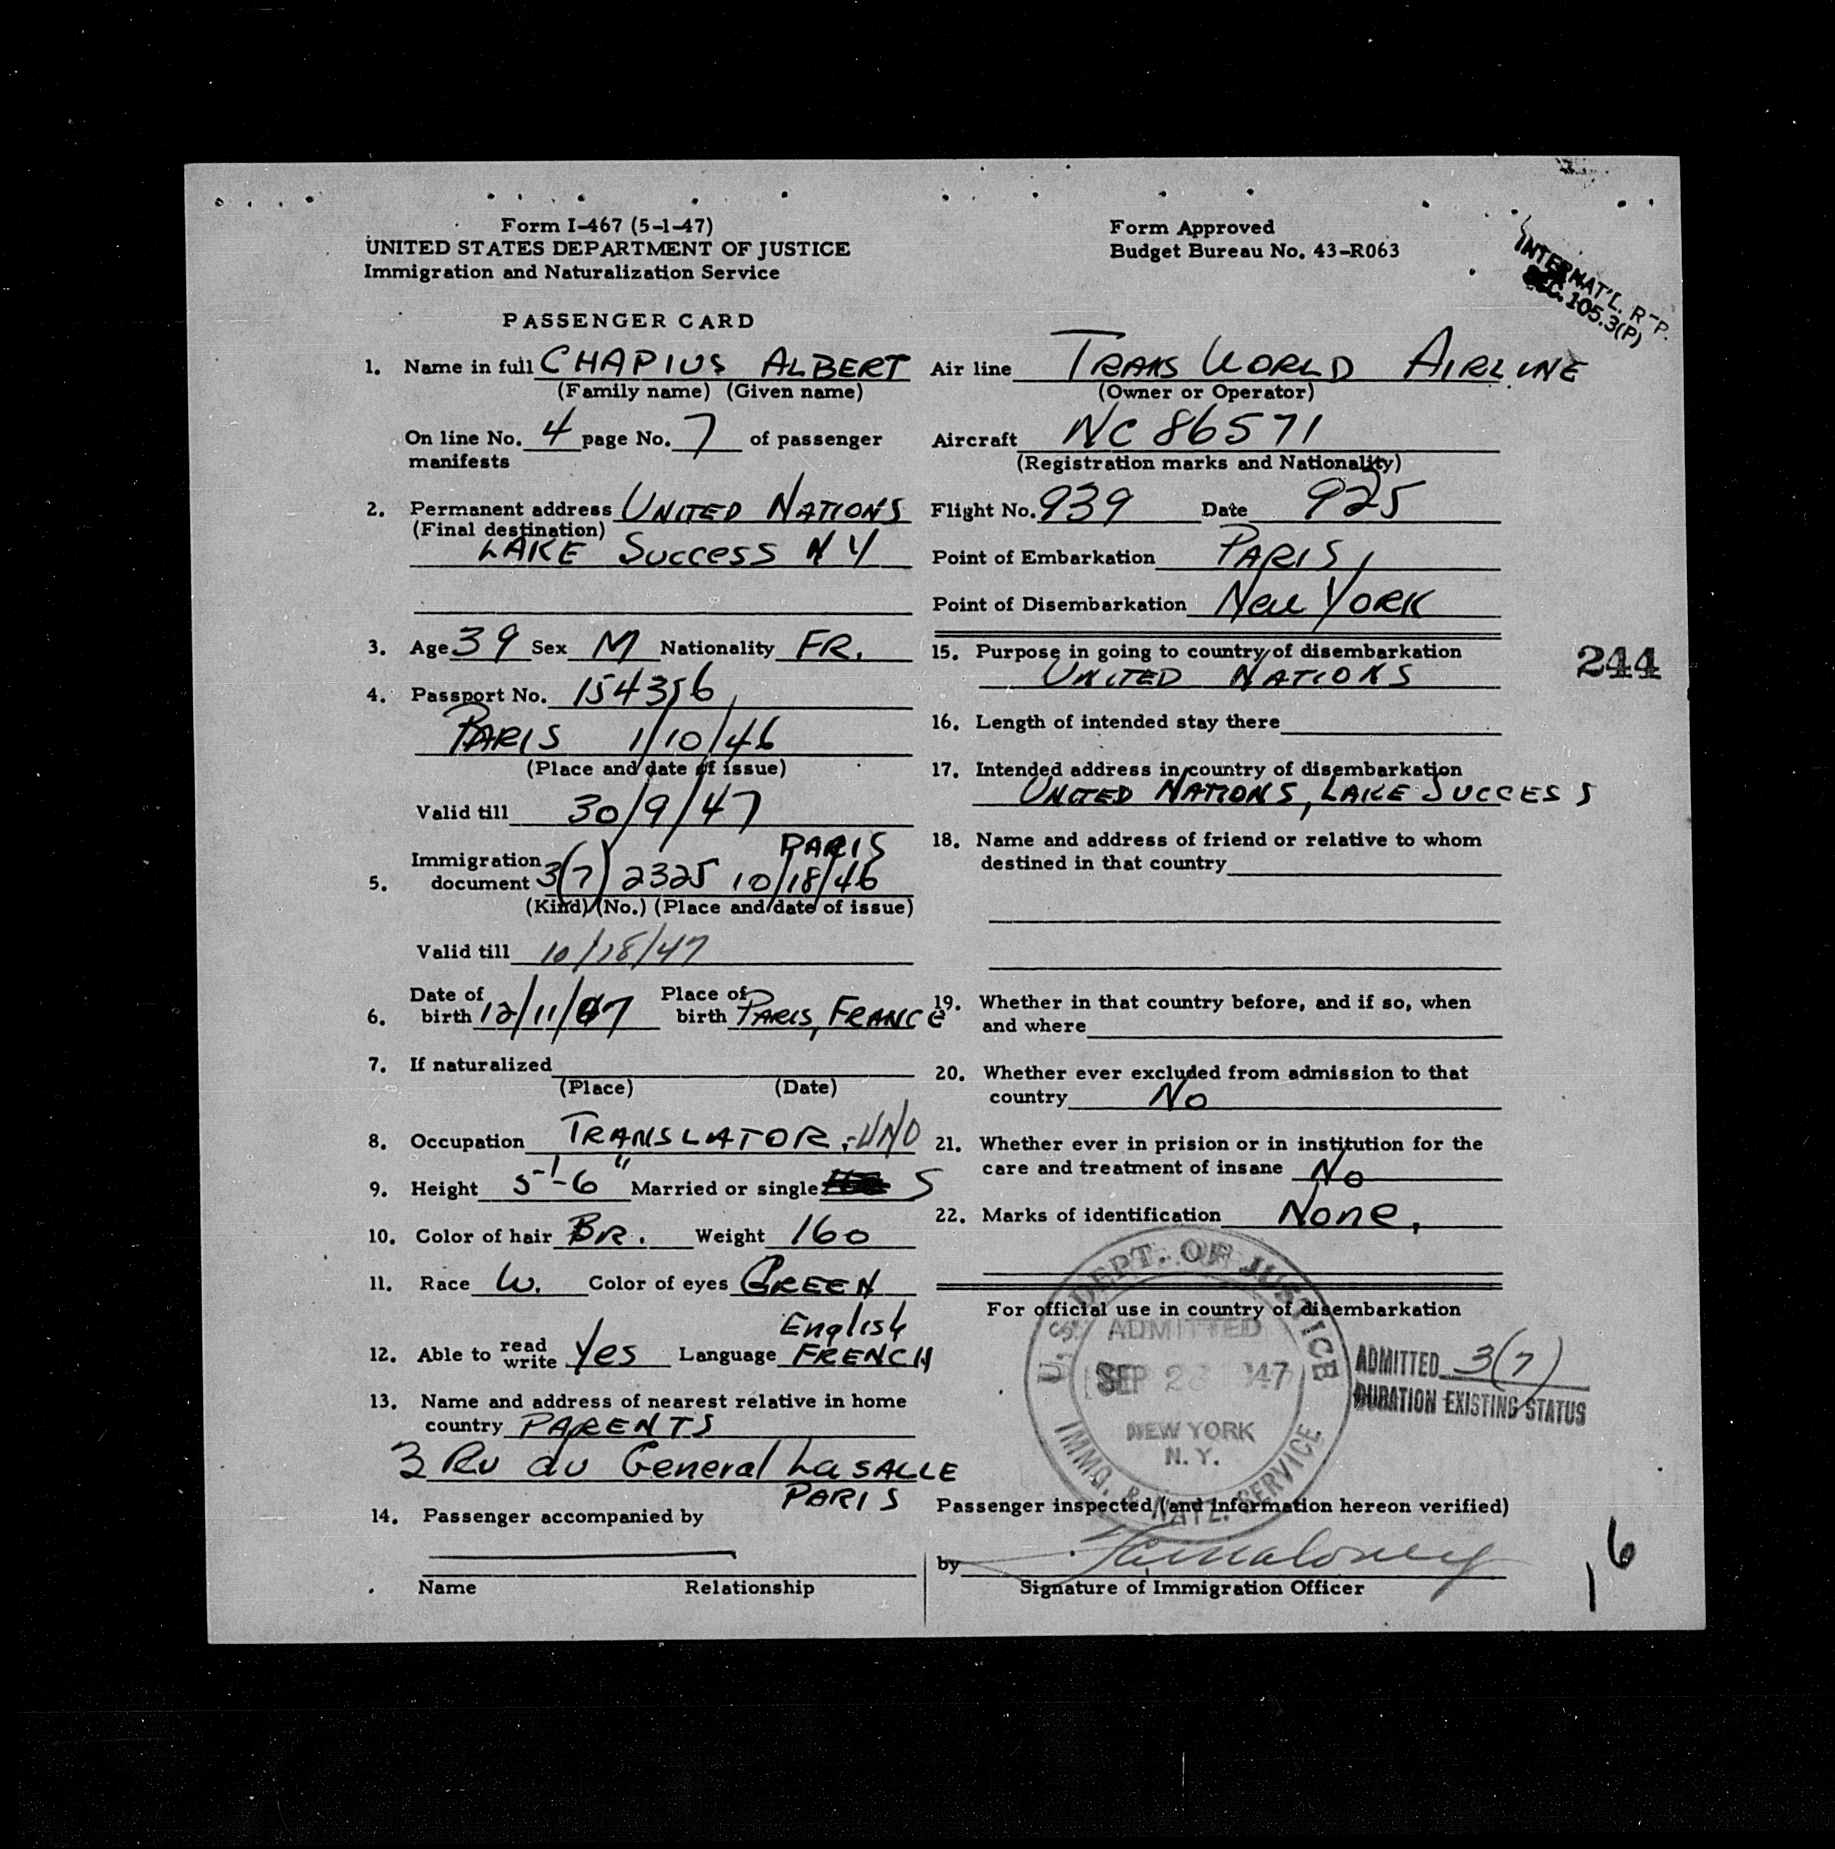 Form I-467 (5-1-47)
UNITED STATES DEPARTMENT OF JUSTICE
Immigration and Naturalization Service
Form Approved
Budget Bureau No. 43-R063
INTERNAT'L. R-P.
SEC. 105.3(P)
PASSENGER CARD
1. Name in full CHAPIUS ALBERT
(Family name) (Given name)
On line No. 4 page No. 7 of passenger
manifests
2. Permanent address UNITED NATIONS
(Final destination)
LAKE SUCCESS N Y
3. Age 39 Sex M Nationality FR.
4. Passport No. 154356
PARIS 1/10/46
(Place and date of issue)
Valid till 30/9/47
PARIS
Immigration
5. document 3(7) 2325 10/18/46
(Kind) (No.) (Place and date of issue)
Valid till 10/18/47
Date of Place of
6. birth 12/11/07 birth PARIS, FRANCE
7. If naturalized
(Place) (Date)
8. Occupation TRANSLATOR, -UNO
9. Height 5'-6" Married or single S
10. Color of hair BR. Weight 160
11. Race W. Color of eyes GREEN
English
12. Able to read write Yes Language FRENCH
13. Name and address of nearest relative in home
country PARENTS
3 Ru du General LaSALLE
PARIS
14. Passenger accompanied by
Name Relationship
Air line TRANS WORLD AIRLINE
(Owner or Operator)
Aircraft NC 86571
(Registration marks and Nationality)
Flight No. 939 Date 925
Point of Embarkation PARIS,
Point of Disembarkation New YORK
15. Purpose in going to country of disembarkation
UNITED NATIONS
244
16. Length of intended stay there
17. Intended address in country of disembarkation
UNITED NATIONS, LAKE SUCCESS
18. Name and address of friend or relative to whom
destined in that country
19. Whether in that country before, and if so, when
and where
20. Whether ever excluded from admission to that
country No
21. Whether ever in prision or in institution for the
care and treatment of insane No
22. Marks of identification None,
For official use in country of disembarkation
U.S. DEPT. OF JUSTICE
ADMITTED
SEP 47
NEW YORK
N. Y.
IMMG. & NATZ. SERVICE
ADMITTED 3(7)
DURATION EXISTING STATUS
Passenger inspected (and information hereon verified)
by
Signature of Immigration Officer
16